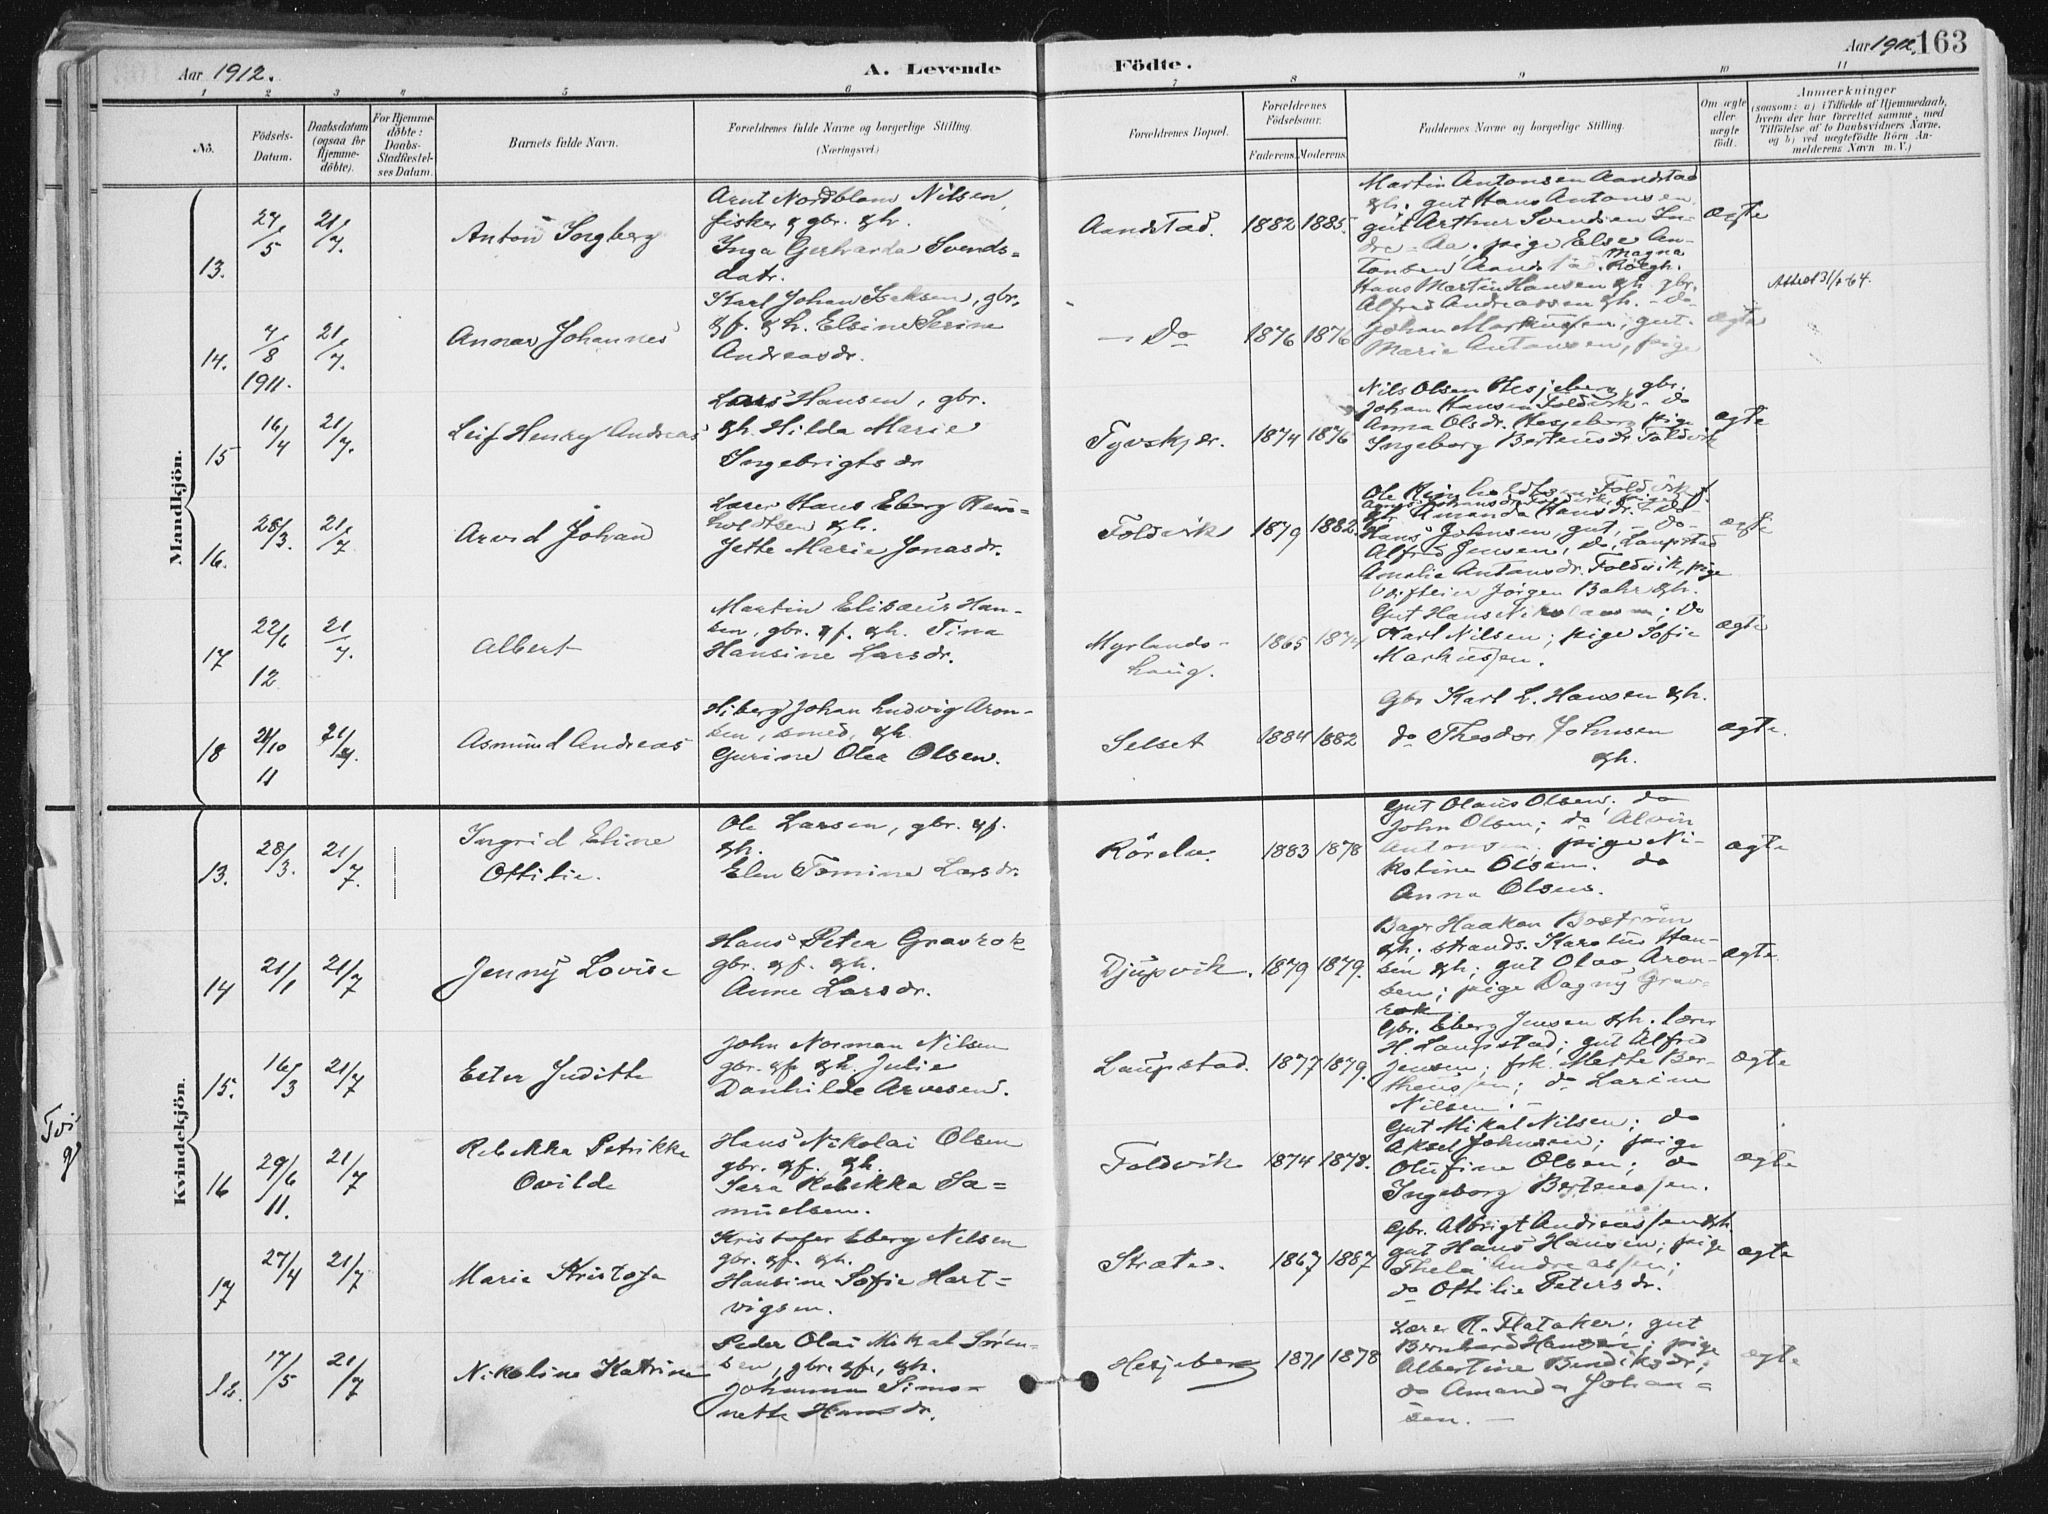 Aar 1912.
A. Levende Födte.
Aar 1912. 163
1 2 3 4 5 6 7 8 9 10 11
No.
Födsels-Datum.
Daabsdatum (ogsaa for Hjemmedöbte).
For Hjemmedöbte: Daabs-Stadfæstelses Datum.
Barnets fulde Navn.
Forældrenes fulde Navne og borgerlige Stilling. (Næringsvei.)
Forældrenes Bopæl.
Forældrenes Födselsaar.
Faderens. Moderens.
Faddernes Navne og borgerlige Stilling.
Om ægte eller uægte födt.
Anmærkninger
(saasom: a) i Tilfælde af Hjemmedaab, hvem der har forrettet samme, med Tilföielse af to Daabsvidners Navne, og b) ved uægtefödte Börn Anmelderens Navn m. V.)
Mandkjön.
13. 27/5 21/7.
Anton Ingberg
Arnt Nordblom Nilsen,
fisker & gbr. & h.
Inga Gerharda Svends=
datr.
Aandstad. 1882 1885.
Martin Antonsen Aandstad
& h.; gut Hans Antonsen
gut Arthur Svendsen In-
dre-Aa; pige Else An-
Magna
ægte
14. 4/8 1911. 21/7.
Annar Johannes
Karl Johan Isaksen, gbr.
& f. & h. Elsine Serine
Andreasdr.
— Do 1876 1876
Hans Martin Hansen & h. gbr.
Alfred Andreassen & h. - do-
Johan Markussen, gut-
Marie Antonsen, pige
ægte
Attest 31/8 64.
15 16/4 21/7.
Leif Henry Andreas
Lars Hansen, gbr.
& h. Hilda Marie
Ingebrigtsdr
Tyvskjær. 1874 1876
Nils Olsen Hesjeberg, gbr.
Johan Hansen Foldvik - do
Anna Olsdr. Hesjeberg pige
Ingeborg Berteusdr. Foldvik
ægte
16. 28/3. 21/7
Arvid Johan
Lærer Hans Eberg Rein-
holdtsen & h.
Jette Marie Jonasdr.
Foldvik 1879 1882
Ole Reinholdtsen Foldvik f.
Hans Johnsen gut, - do-
Alfred Jensen, do, Laupstad
Amalie Antonsdr. Foldvik, pige
ægte
17 22/6 12 21/7.
Albert
Martin Elisæus Han-
sen, gbr. & f. & h. Tina
Hansine Larsdr.
Myrlands-
haug. 1865 1874
Jørgen Bakr & h.
Gut Hans Nikolaisen; do
Karl Nilsen; pige Sofie
Markussen.
ægte
18 21/10 11
Asmund Andreas
Hiberg Johan Ludvig Aron-
sen, smed, & h
Gurine Olea Olsen.
Selset 1884 1882
Gbr Karl L. Hansen & h.
do Theodor Johnsen
& h.
ægte.
Kvindekjön.
13. 28/3. 21/7.
Ingrid Eline
Ottilie.
Ole Larsen, gbr. & f.
& h.
Elen Tomine Larsdr.
Röreln. 1883 1878
Gut Olaus Olsen; do
John Olsen; do Alvin
Antonsen; pige Ni-
koline Olsen. do
Anna Olsen.
ægte
14 21/1 21/7
Jenny Lovise
Hans Peter Gravrok
gbr. & f. & h.
Anne Larsdr.
Djupvik. 1879 1879.
Bager Haakon Boström
& h; strands. Karolus Han-
sen & h; gut Olav Aron-
sen; pige Dagny Grav-
rok
ægte
15. 16/3 21/7
Ester Judithe
John Norman Nilsen
gbr. & f. & h. Julie
Danhilde Arvesen.
Laupstad. 1877 1879.
Gbr. Eberg Jensen & h. lærer
H. Laupstad; gut Alfred
Jensen; frk. Mette Ber-
theussen; do Larine
Nilsen. -
ægte
16 29/6 11. 21/7
Rebekka Petrikke
Ovilde
Hans Nikolai Olsen
gbr. & f. & h.
Sara Rebekka Sa=
muelsen.
Foldvik 1874 1878.
Gut Mikal Nilsen; do
Aksel Johnsen; pige
Olufine Olsen; do
Ingeborg Berteussen.
ægte
17 27/4 21/7
Marie Kristofa
Kristofer Eberg Nilsen
gbr. & f. & h.
Hansine Sofie Hart=
vigsen.
Stræte. 1867 1887
Gbr. Albrigt Andreassen & h.
gut Hans Hansen; pige
Thela Andreassen;
do Ottilie Petersdr.
ægte
18. 17/5 21/7
Nikoline Katrine
Peder Olai Mikal Sören-
sen, gbr. & f., & h.
Johanna Simo=
nette Hansdr.
Hesjeberg 1871 1878
Lærer R. Flataker; gut
Bernhard Hansen; pige
Albertine Bendiksdr;
do Amanda Johan=
sen. —
ægte